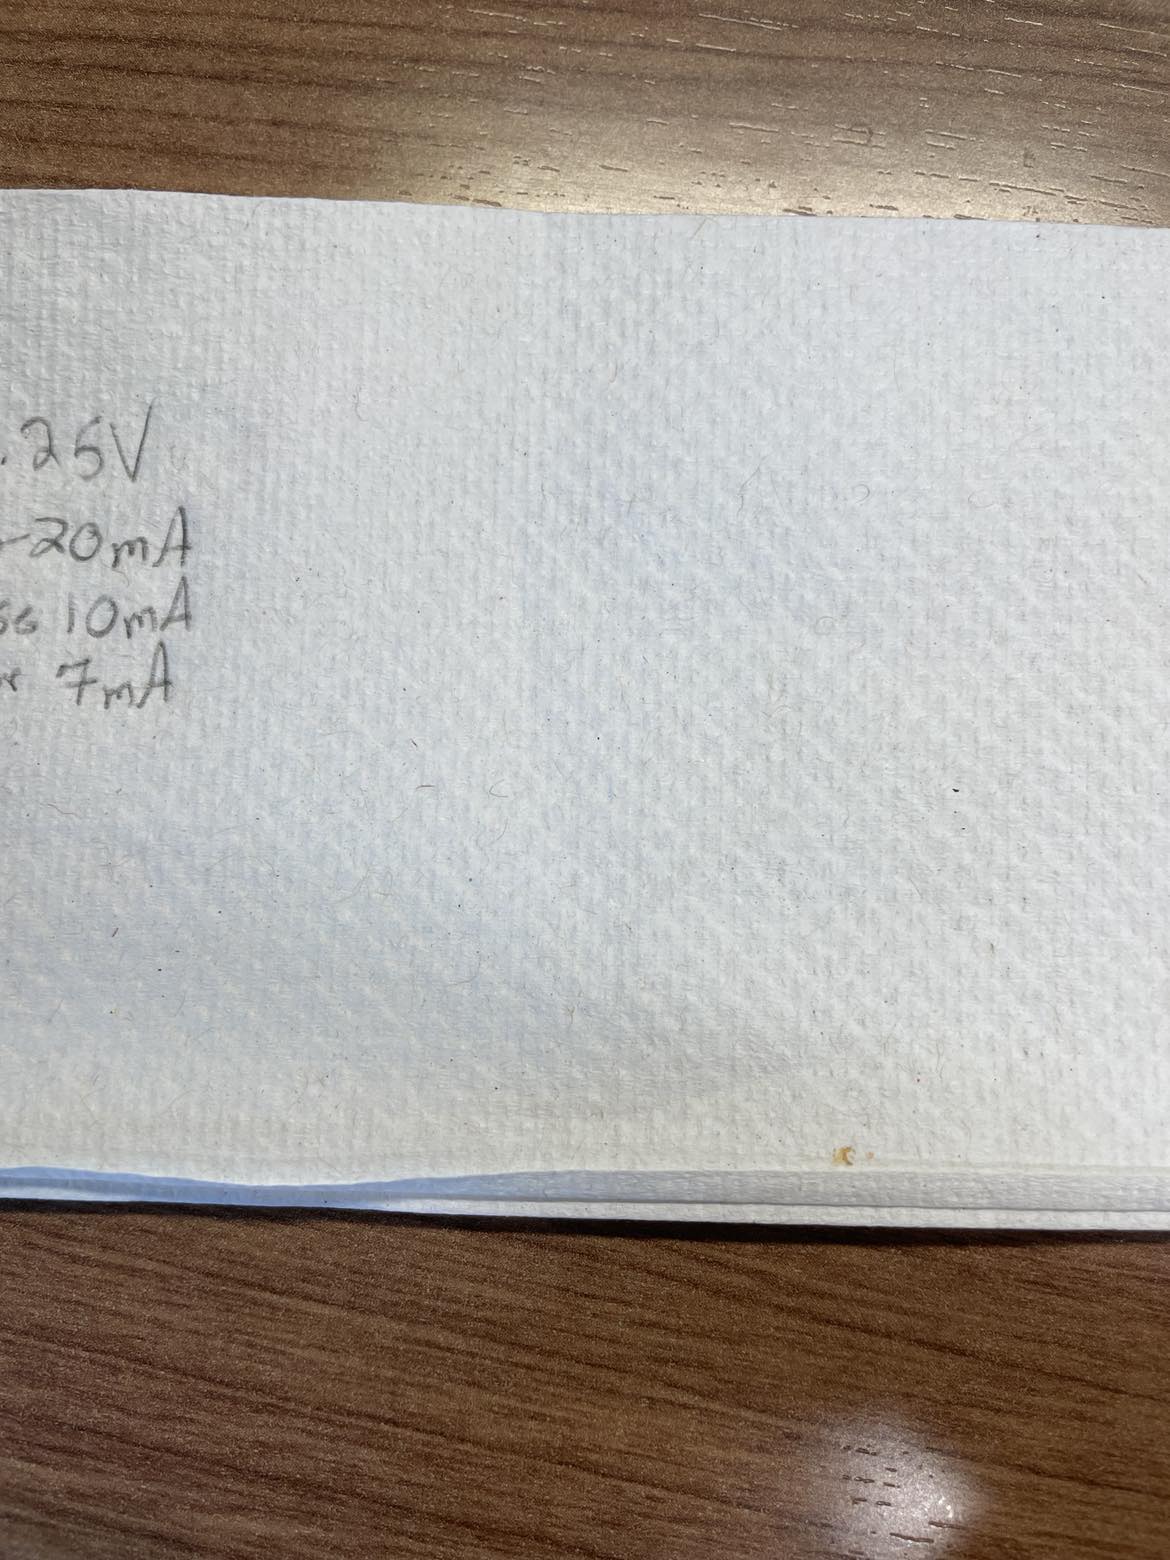 .25V
-20mA
10mA
7mA